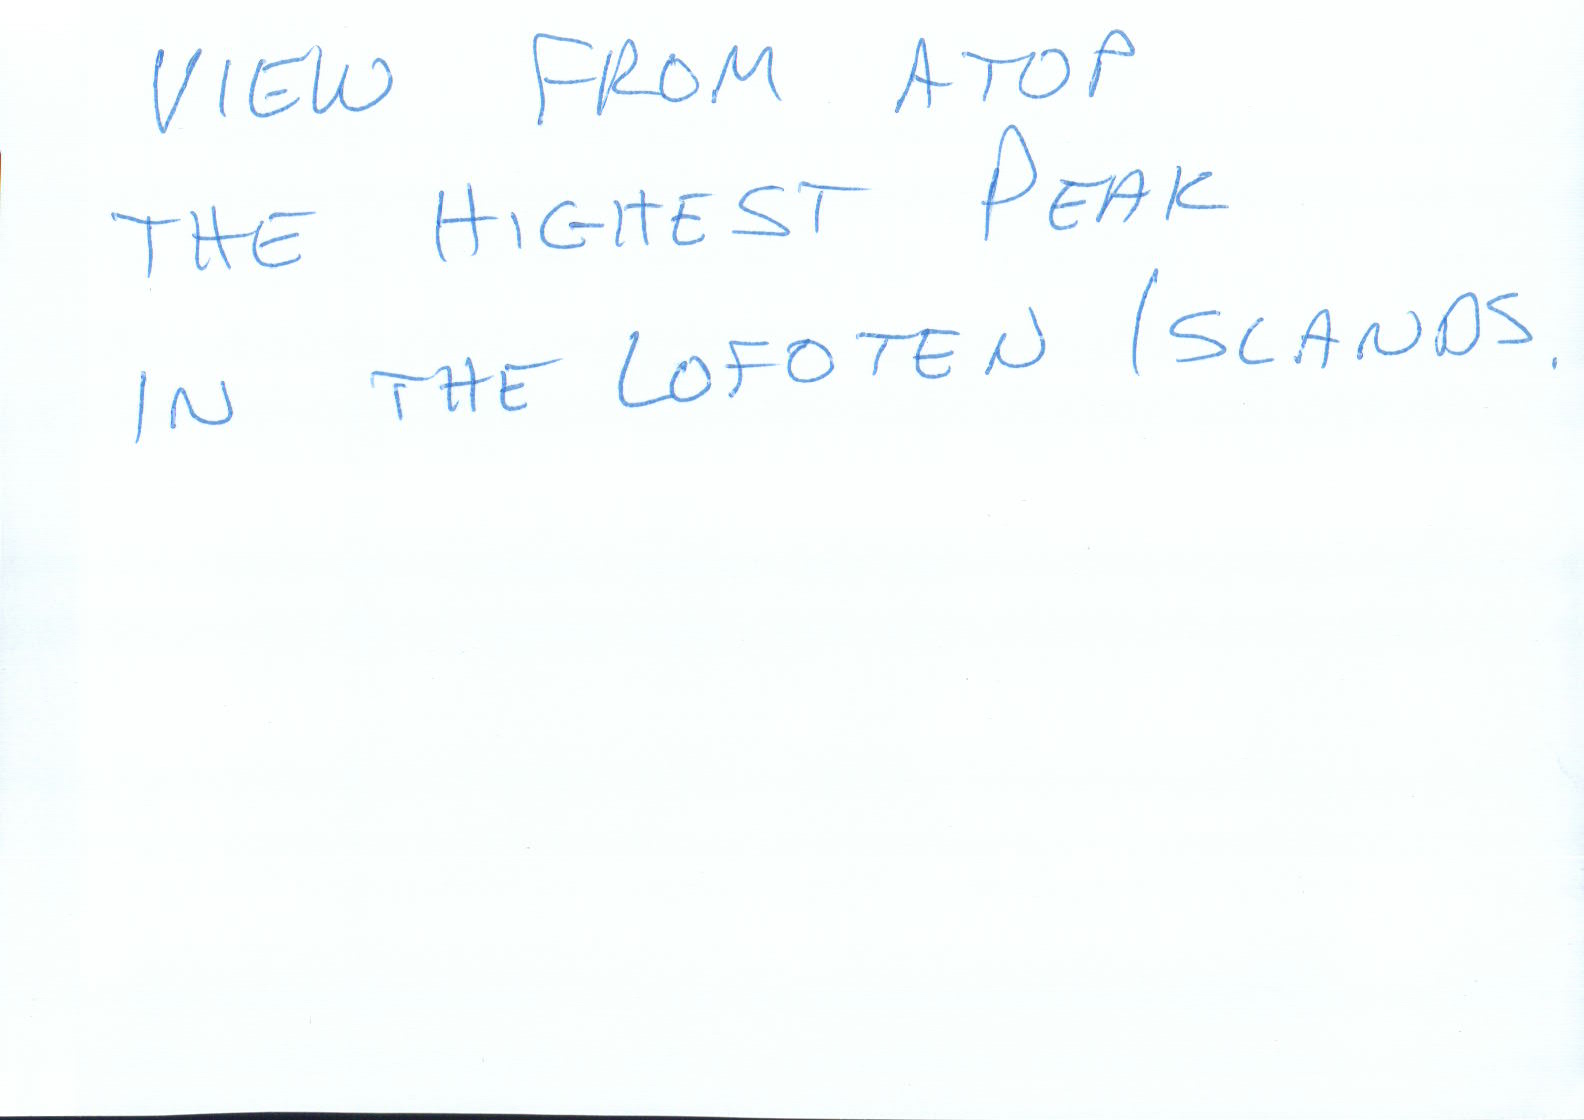 VIEW FROM ATOP
THE HIGHEST PEAK
IN THE LOFOTEN ISLANDS.